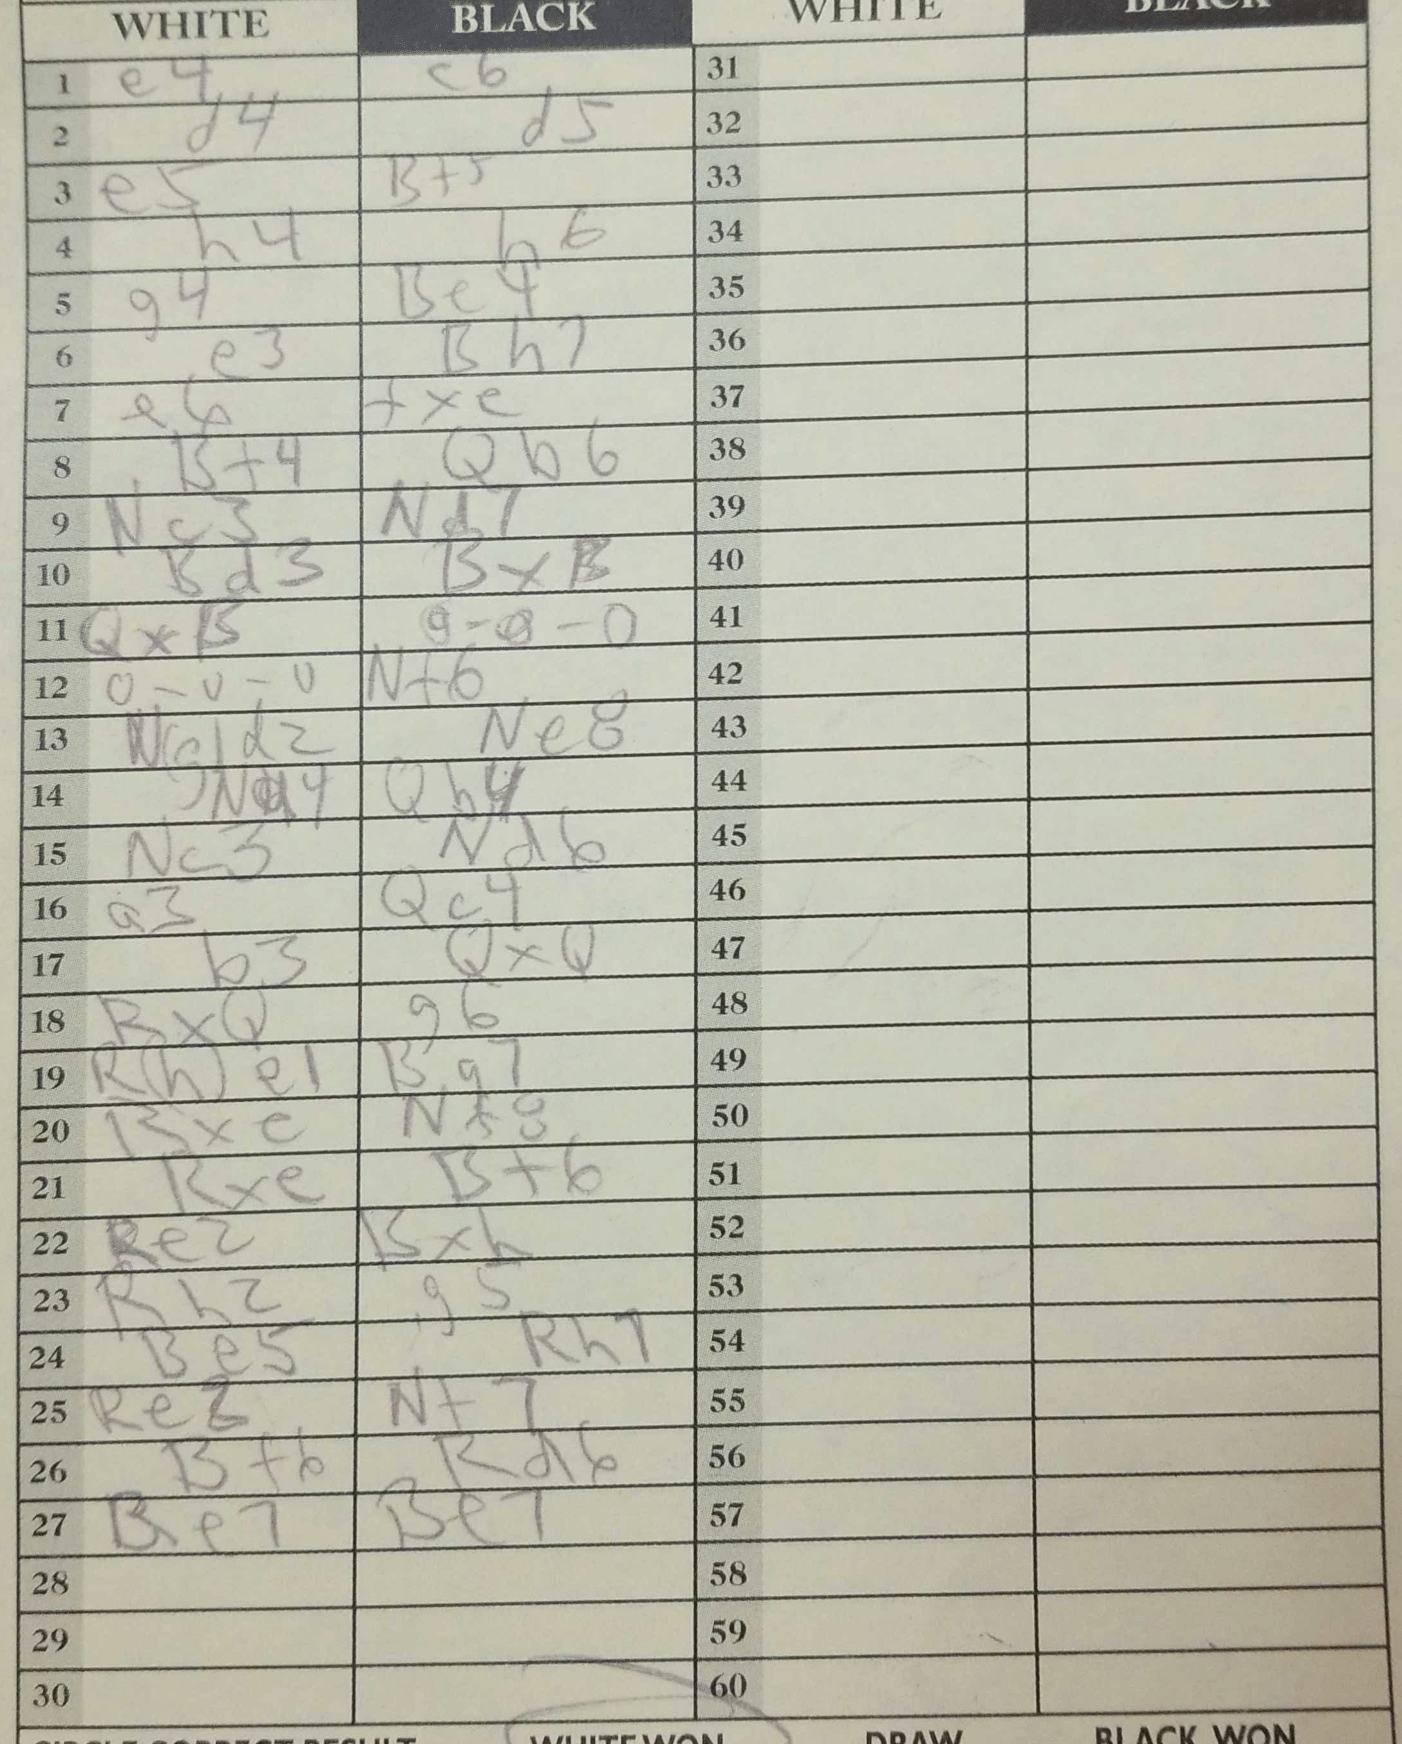 WHITE BLACK WHITE BLACK
1 e4 c6 31
2 d4 d5 32
3 e5 Bf5 33
4 h4 h6 34
5 g4 Be4 35
6 e3 Bh7 36
7 e6 fxe 37
8 Bf4 Qb6 38
9 Nc3 Nd7 39
10 Bd3 BxB 40
11 QxB 0-0-0 41
12 0-0-0 Nf6 42
13 Ne8 43
14 Qb4 44
15 Nc3 Nd6 45
16 a3 Qc4 46
17 b3 QxQ 47
18 RxQ g6 48
19 R(h)e1 Bg7 49
20 Bxe Nf8 50
21 Rxe Bf6 51
22 Re2 Bxh 52
23 Rh2 g5 53
24 Be5 Rh7 54
25 Nf7 55
26 Bf6 Rd6 56
27 Be7 57
28 58
29 59
30 60
CIRCLE CORRECT RESULT WHITE WON DRAW BLACK WON